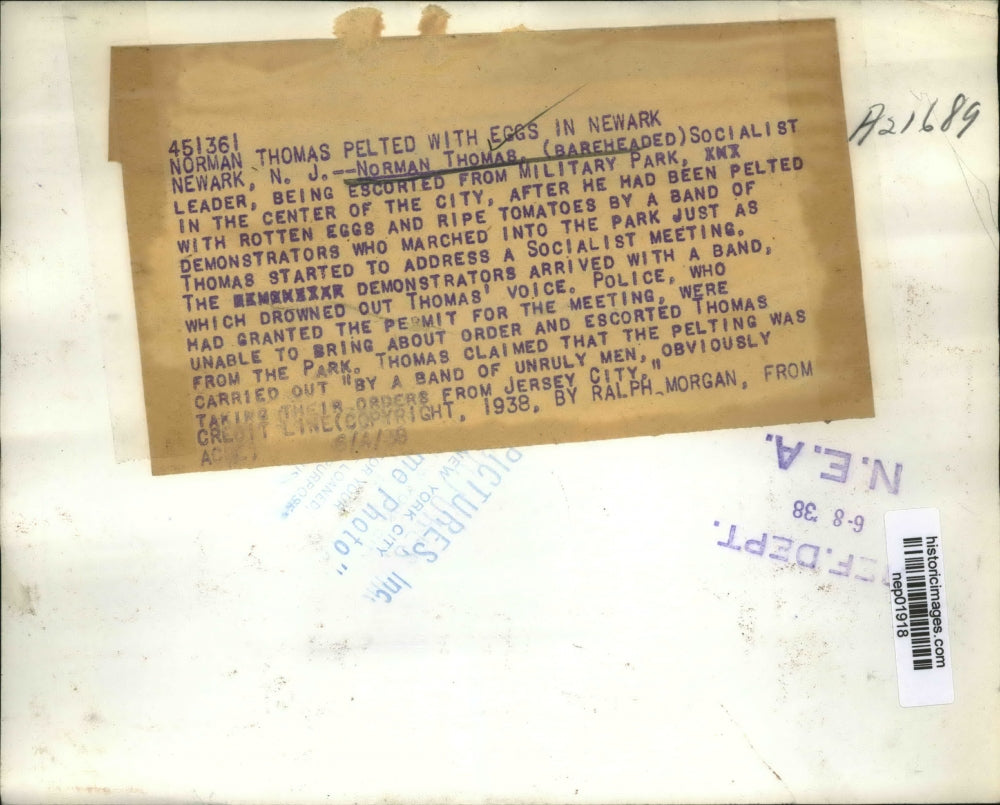 451361
NORMAN THOMAS PELTED WITH EGGS IN NEWARK
NEWARK, N. J.--NORMAN THOMAS, (BAREHEADED) SOCIALIST
LEADER, BEING ESCORTED FROM MILITARY PARK, XNX
IN THE CENTER OF THE CITY, AFTER HE HAD BEEN PELTED
WITH ROTTEN EGGS AND RIPE TOMATOES BY A BAND OF
DEMONSTRATORS WHO MARCHED INTO THE PARK JUST AS
THOMAS STARTED TO ADDRESS A SOCIALIST MEETING.
THE DEMONSTRATORS ARRIVED WITH A BAND,
WHICH DROWNED OUT THOMAS' VOICE. POLICE, WHO
HAD GRANTED THE PERMIT FOR THE MEETING, WERE
UNABLE TO BRING ABOUT ORDER AND ESCORTED THOMAS
FROM THE PARK. THOMAS CLAIMED THAT THE PELTING WAS
CARRIED OUT "BY A BAND OF UNRULY MEN, OBVIOUSLY
TAKING THEIR ORDERS FROM JERSEY CITY."
CREDIT LINE (COPYRIGHT, 1938, BY RALPH MORGAN, FROM
6/4/38
A21689
PICTURES Inc.
NEW YORK CITY
me Photo"
FOR YOUR
LOANED
N.E.A.
6-8-38
EF. DEPT.
historicimages.com
nep01918